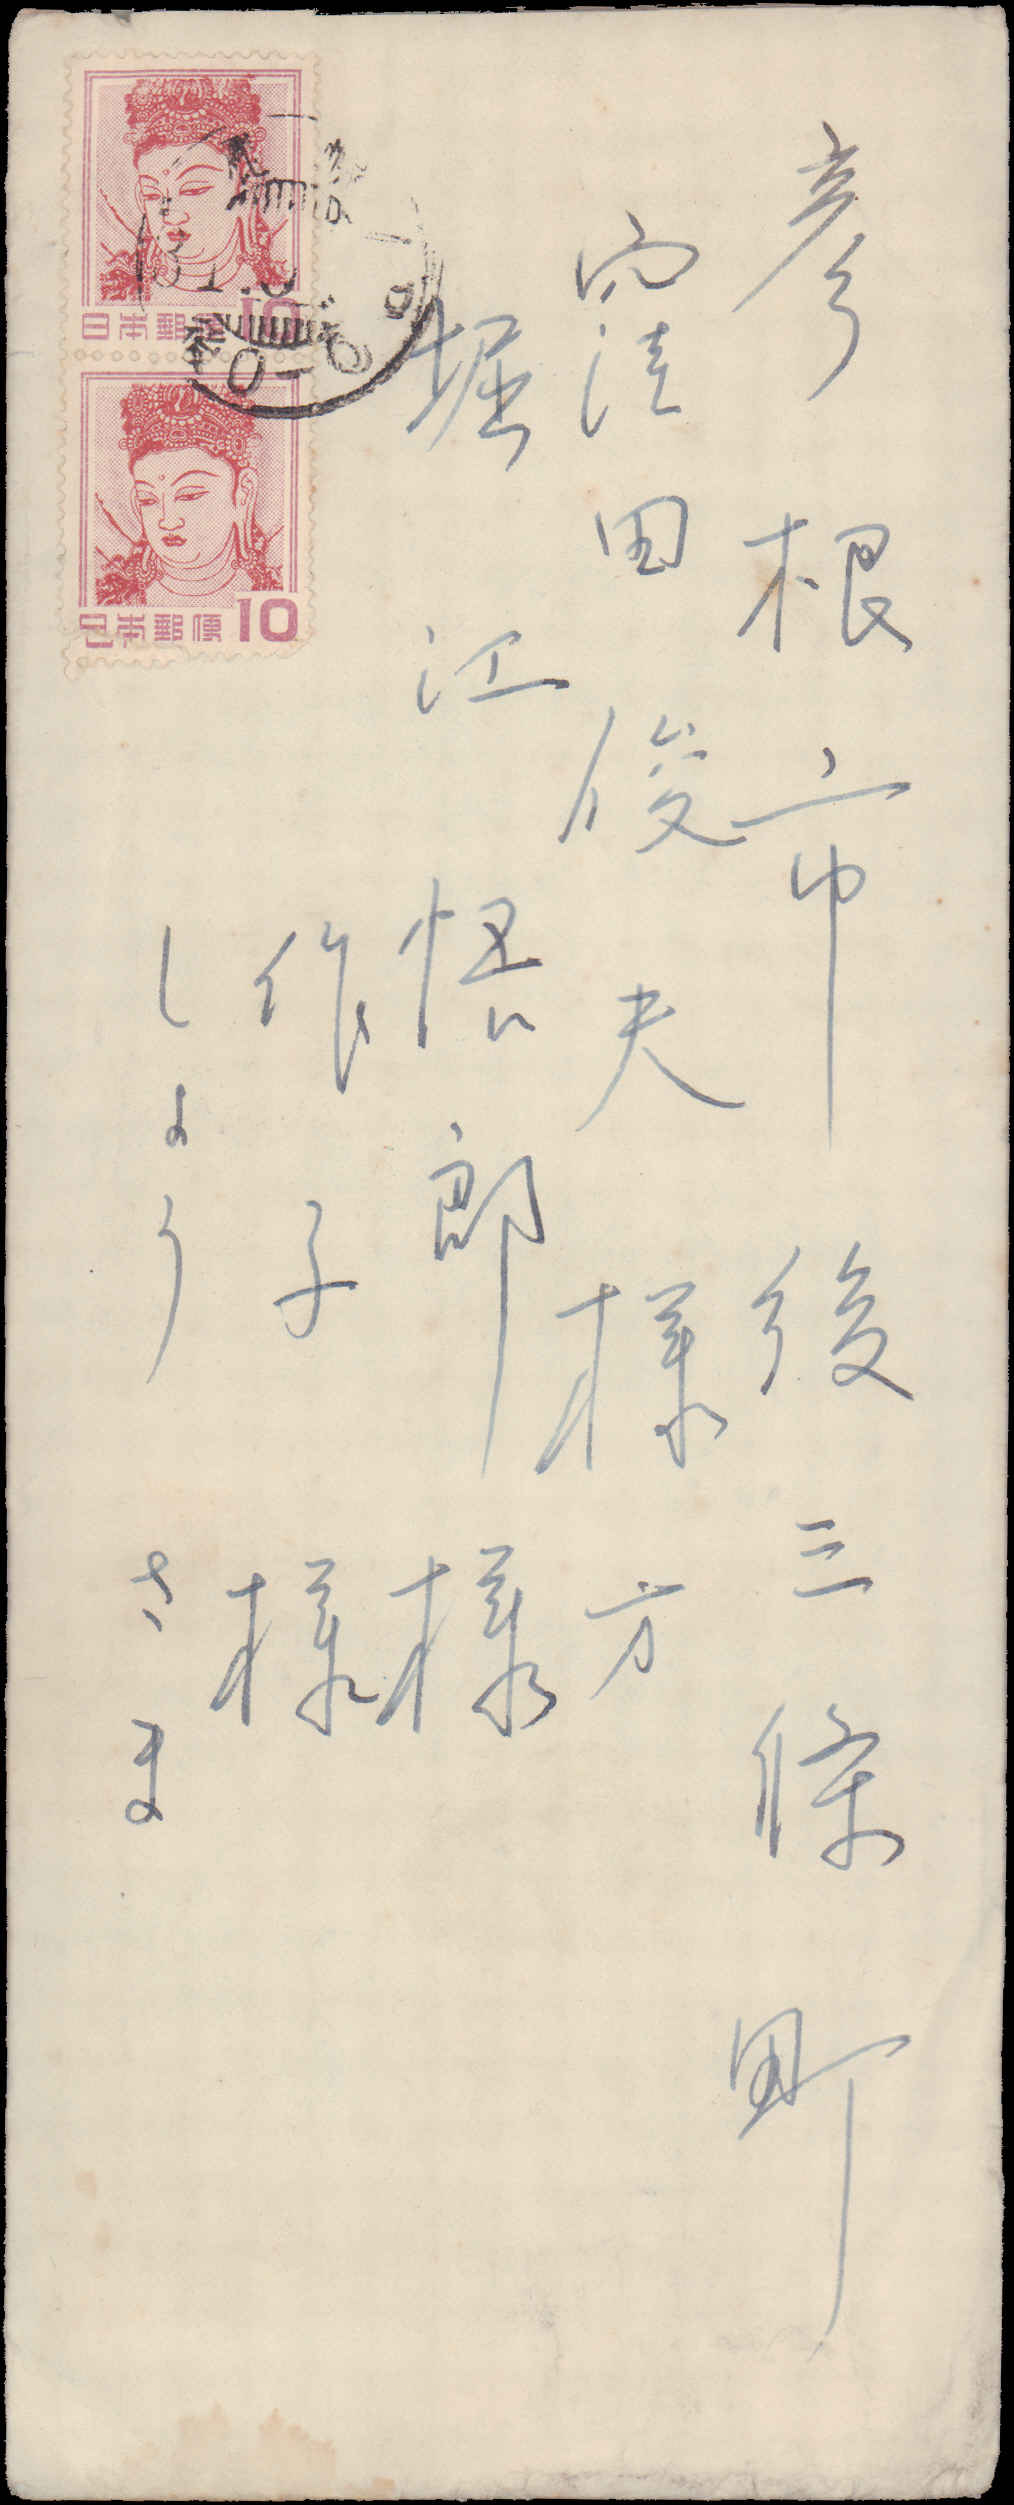 彦根市後三條町
窪田俊夫様方
堀江悟郎様
作子様
しょうさま
日本郵便 10
日本郵便 10